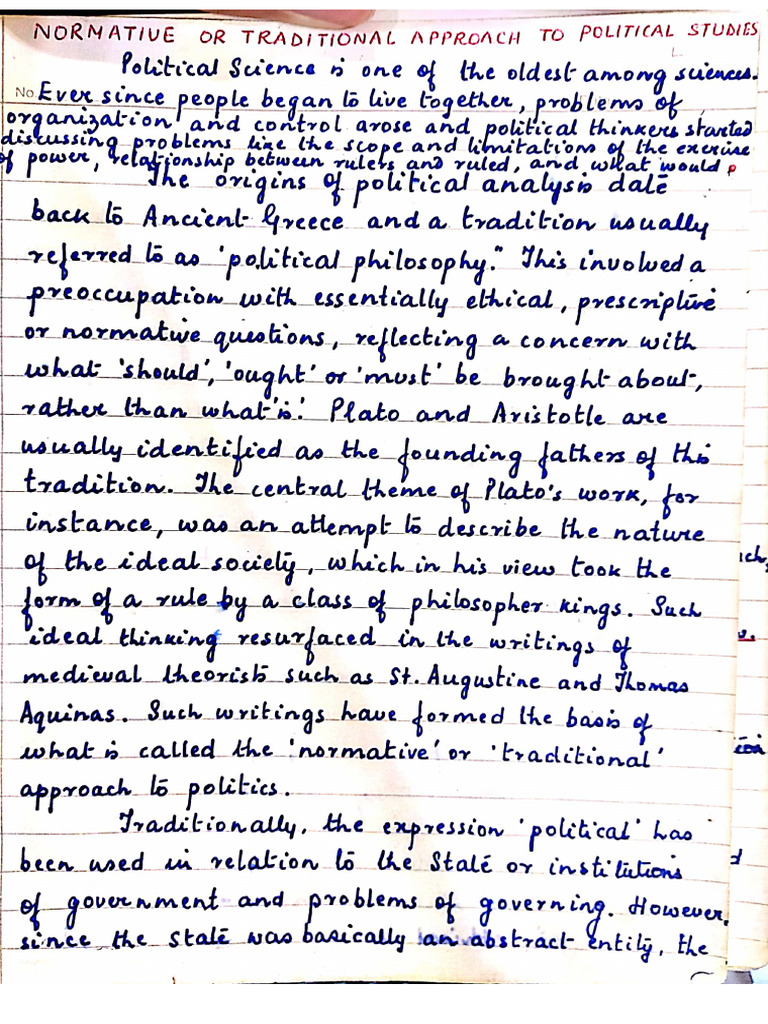 NORMATIVE OR TRADITIONAL APPROACH TO POLITICAL STUDIES
Political Science is one of the oldest among sciences.
No.
Ever since people began to live together, problems of
organization and control arose and political thinkers started
discussing problems like the scope and limitations of the exercise
of power, relationship between rulers and ruled, and what would
The origins of political analysis date
back to Ancient Greece and a tradition usually
referred to as 'political philosophy." This involved a
preoccupation with essentially ethical, prescriptive
or normative questions, reflecting a concern with
what 'should', 'ought' or 'must' be brought about,
rather than what 'is'. Plato and Aristotle are
usually identified as the founding fathers of this
tradition. The central theme of Plato's work, for
instance, was an attempt to describe the nature
of the ideal society, which in his view took the
form of a rule by a class of philosopher kings. Such
ideal thinking resurfaced in the writings of
medieval theorists such as St. Augustine and Thomas
Aquinas. Such writings have formed the basis of
what is called the 'normative' or 'traditional'
approach to politics.
Traditionally, the expression 'political' has
been used in relation to the State or institutions
of government and problems of governing. However,
since the State was basically an abstract entity, the